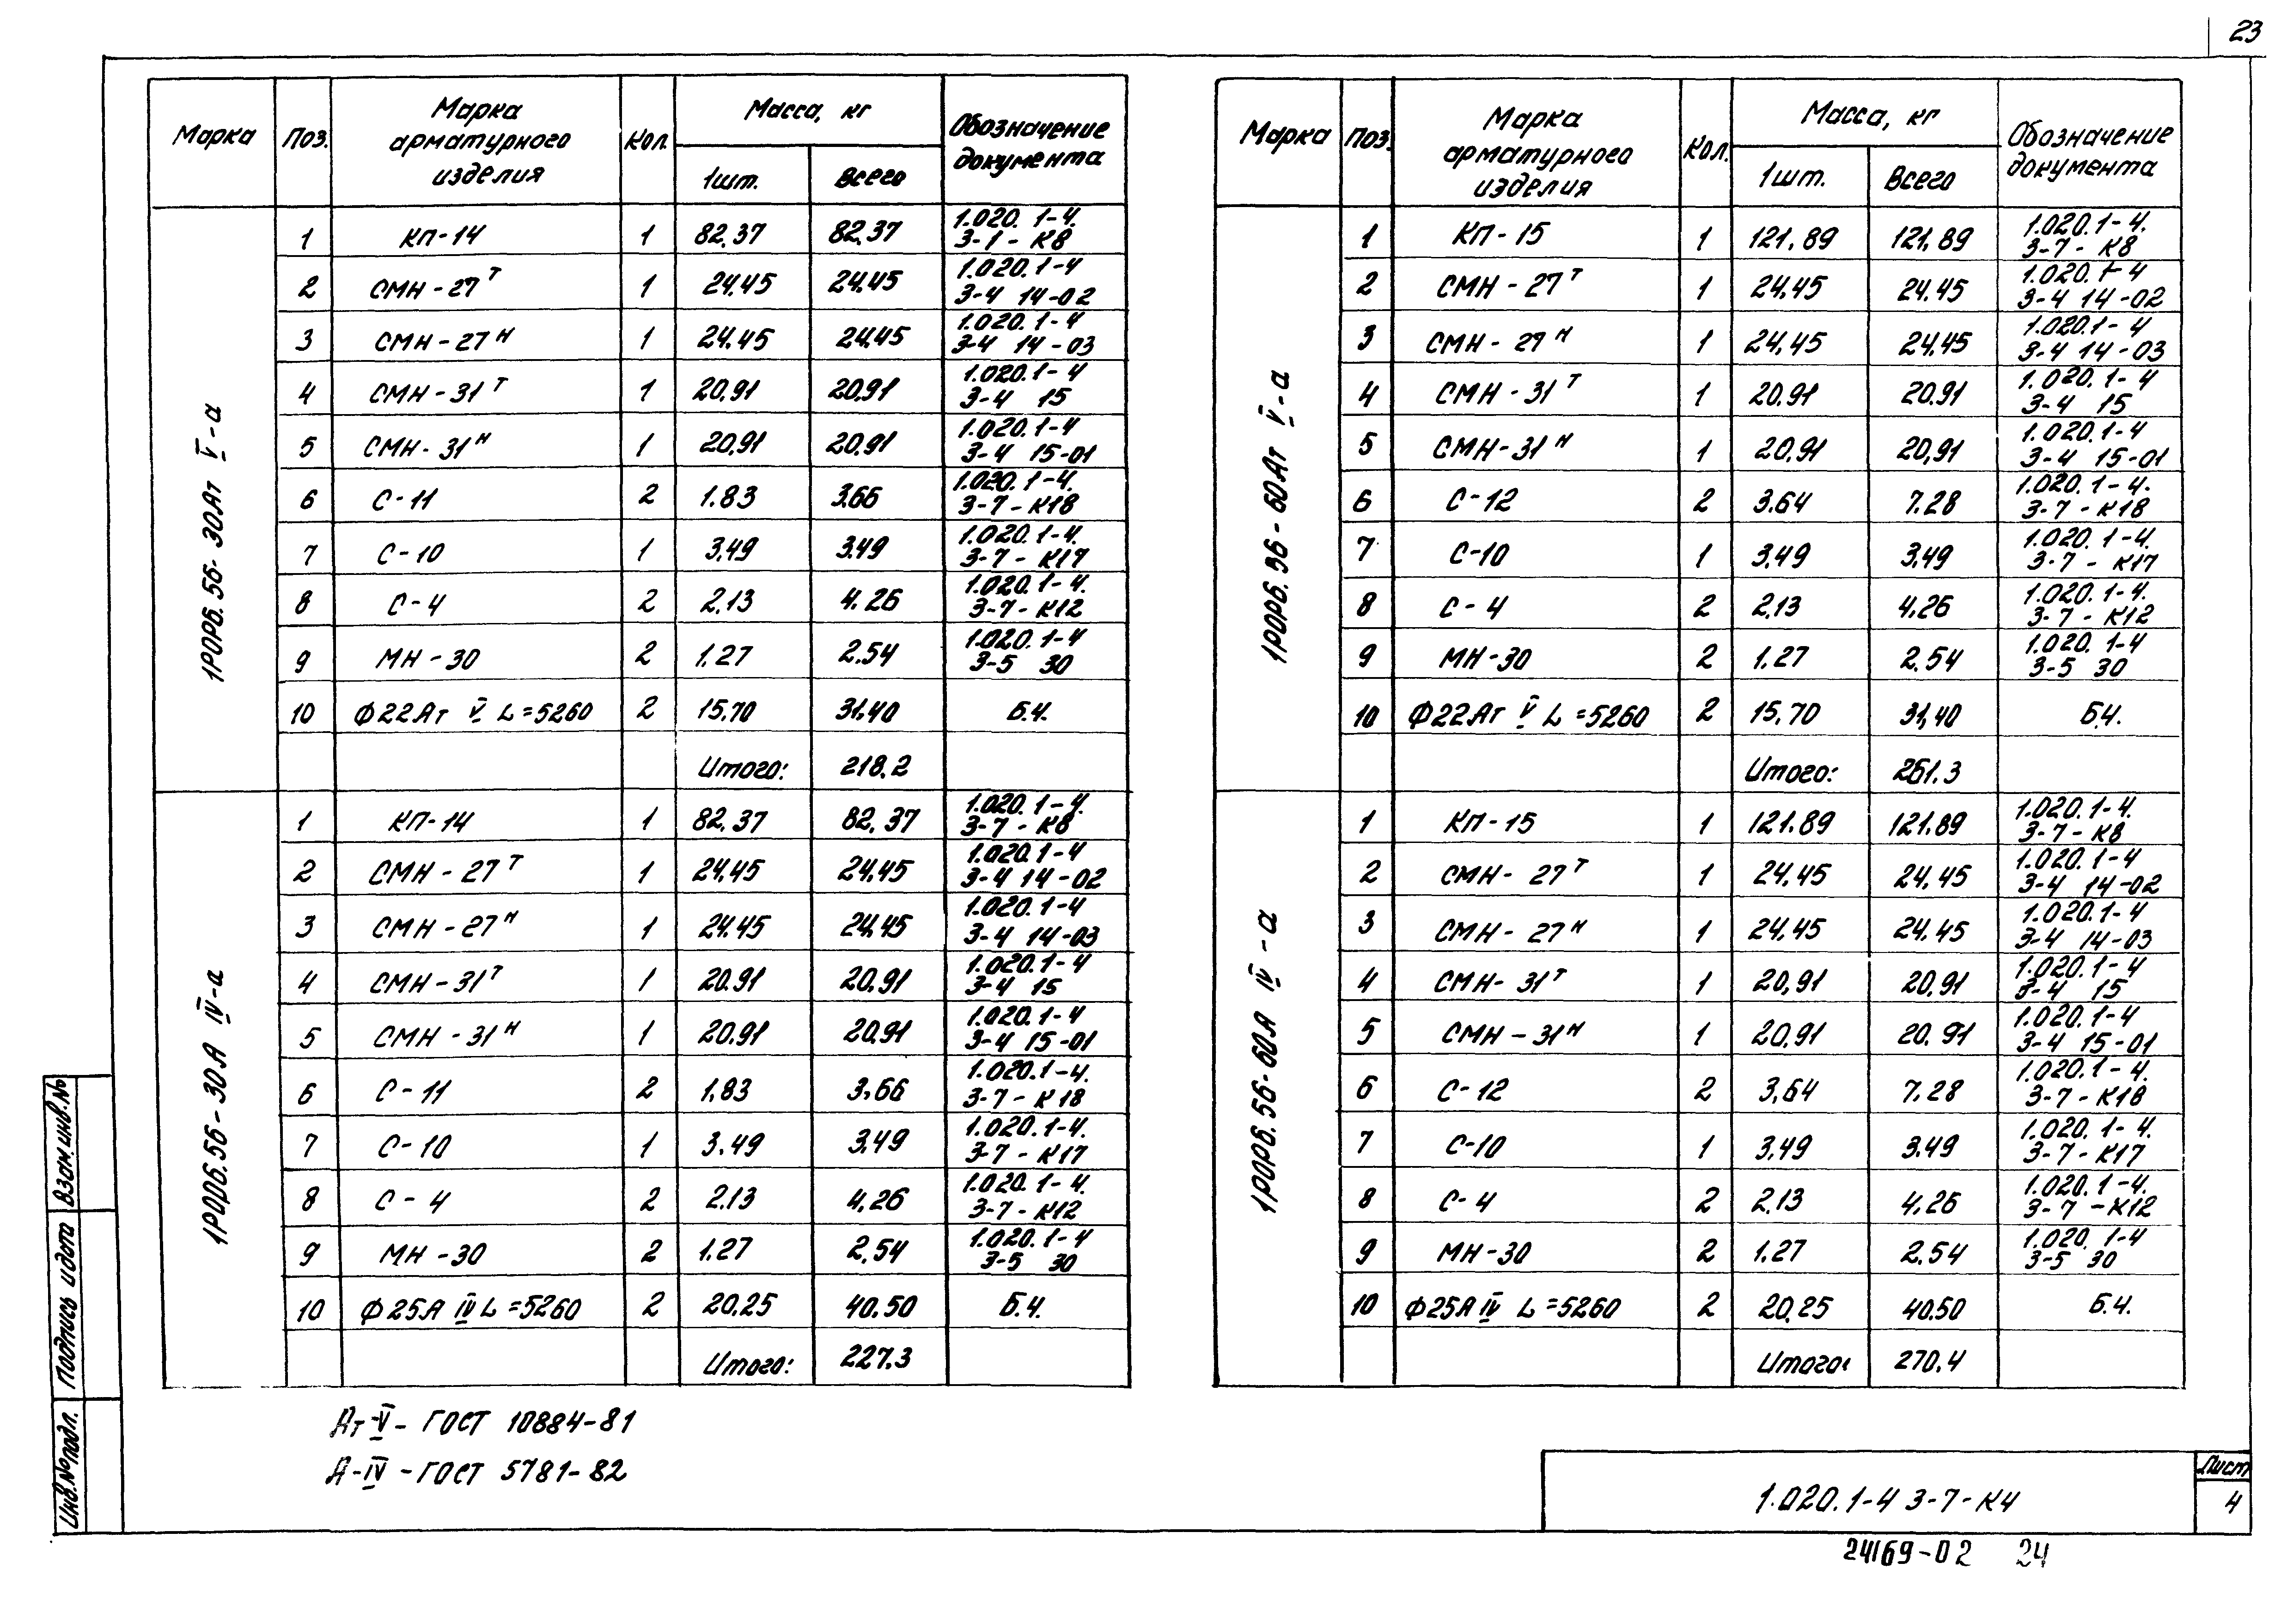 23
Марка Поз. Марка арматурного изделия Кол. Масса, кг 1шт. Всего Обозначение документа
1РОР6.56-30Ат V-а
1 КП-14 1 82,37 82,37 1.020.1-4. 3-1-К8
2 СМН-27Т 1 24,45 24,45 1.020.1-4 3-4 14-02
3 СМН-27Н 1 24,45 24,45 1.020.1-4 3-4 14-03
4 СМН-31Т 1 20,91 20,91 1.020.1-4 3-4 15
5 СМН-31Н 1 20,91 20,91 1.020.1-4 3-4 15-01
6 С-11 2 1.83 3.66 1.020.1-4. 3-7-К18
7 С-10 1 3,49 3,49 1.020.1-4. 3-7-К17
8 С-4 2 2,13 4.26 1.020.1-4. 3-7-К12
9 МН-30 2 1.27 2.54 1.020.1-4 3-5 30
10 Ф22Ат V L=5260 2 15,70 31,40 Б.Ч.
Итого: 218,2
1РОР6.56-30А IV-а
1 КП-14 1 82,37 82,37 1.020.1-4. 3-7-К8
2 СМН-27Т 1 24,45 24,45 1.020.1-4 3-4 14-02
3 СМН-27Н 1 24,45 24,45 1.020.1-4 3-4 14-03
4 СМН-31Т 1 20,91 20,91 1.020.1-4 3-4 15
5 СМН-31Н 1 20,91 20,91 1.020.1-4 3-4 15-01
6 С-11 2 1,83 3,66 1.020.1-4. 3-7-К18
7 С-10 1 3,49 3,49 1.020.1-4. 3-7-К17
8 С-4 2 2.13 4,26 1.020.1-4. 3-7-К12
9 МН-30 2 1.27 2,54 1.020.1-4 3-5 30
10 Ф25А IV L=5260 2 20,25 40,50 Б.Ч.
Итого: 227,3
Ат-V- ГОСТ 10884-81
А-IV-ГОСТ 5781-82
Марка Поз. Марка арматурного изделия Кол. Масса, кг 1шт. Всего Обозначение документа
1РОР6.56-60Ат V-а
1 КП-15 1 121,89 121,89 1.020.1-4. 3-7-К8
2 СМН-27Т 1 24,45 24.45 1.020.1-4 3-4 14-02
3 СМН-27Н 1 24,45 24,45 1.020.1-4 3-4 14-03
4 СМН-31Т 1 20,91 20,91 1.020.1-4 3-4 15
5 СМН-31Н 1 20,91 20,91 1.020.1-4 3-4 15-01
6 С-12 2 3.64 7.28 1.020.1-4. 3-7-К18
7 С-10 1 3,49 3,49 1.020.1-4. 3-7-К17
8 С-4 2 2,13 4,26 1.020.1-4. 3-7-К12
9 МН-30 2 1.27 2.54 1.020.1-4 3-5 30
10 Ф22Ат V L=5260 2 15,70 31,40 Б.Ч.
Итого: 261.3
1РОР6.56-60А IV-а
1 КП-15 1 121.89 121.89 1.020.1-4. 3-7-К8
2 СМН-27Т 1 24,45 24,45 1.020.1-4 3-4 14-02
3 СМН-27Н 1 24,45 24,45 1.020.1-4 3-4 14-03
4 СМН-31Т 1 20,91 20,91 1.020.1-4 3-4 15
5 СМН-31Н 1 20,91 20,91 1.020.1-4 3-4 15-01
6 С-12 2 3,64 7,28 1.020.1-4. 3-7-К18
7 С-10 1 3.49 3.49 1.020.1-4. 3-7-К17
8 С-4 2 2.13 4,26 1.020.1-4. 3-7-К12
9 МН-30 2 1.27 2.54 1.020.1-4 3-5 30
10 Ф25А IV L=5260 2 20,25 40,50 Б.Ч.
Итого: 270,4
Взам.инв.№
Подпись и дата
Инв.№подл.
1.020.1-4 3-7-К4
Лист
4
24169-02 24